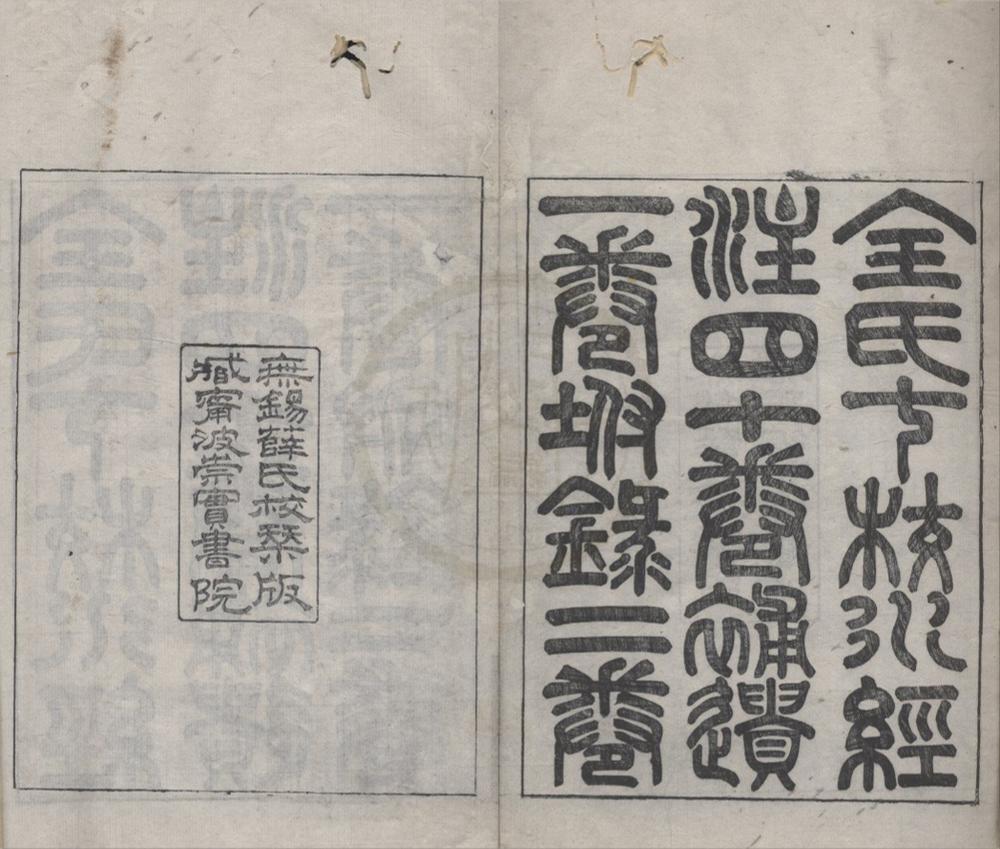 全氏七校水經
注四十卷補遺
一卷坿錄二卷
無錫薛氏校栞版
臧甯波崇實書院